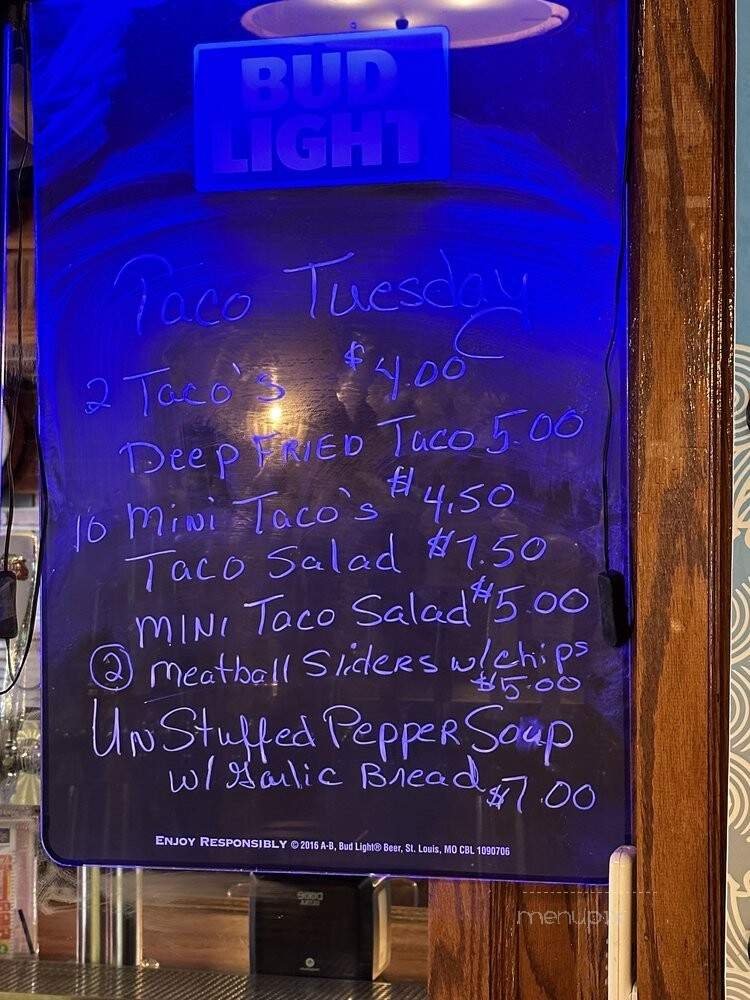 BUD
LIGHT
Taco Tuesday
2 Taco's $4.00
Deep FRIED Taco 5.00
10 Mini Taco's $4.50
Taco Salad $7.50
MINI Taco Salad $5.00
② Meatball Sliders w/chips
$5.00
UNStuffed Pepper Soup
w/ Garlic Bread $7.00
ENJOY RESPONSIBLY © 2016 A-B, Bud Light® Beer, St. Louis, MO CBL 1090706
menupix